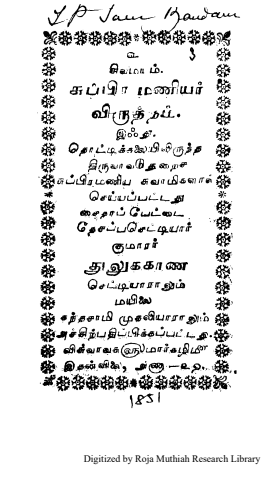 உ
சிவமயம்.
சுப்பிரமணியர்
விருத்தம்.
இஃது.
தொட்டிக்கலையிலிருந்த
திருவாவடுதுறைச்
சுப்பிரமணிய சுவாமிகளால்
செய்யப்பட்டது
சைதாப் பேட்டை
தேசப்பசெட்டியார்
குமாரர்
துலுக்காண
செட்டியாராலும்
மயிலை
கந்தசாமி முதலியாராலும்
அச்சிற்பதிப்பிக்கப்பட்டது.
இதன்விலை, அணா
1851
Digitized by Roja Muthiah Research Library